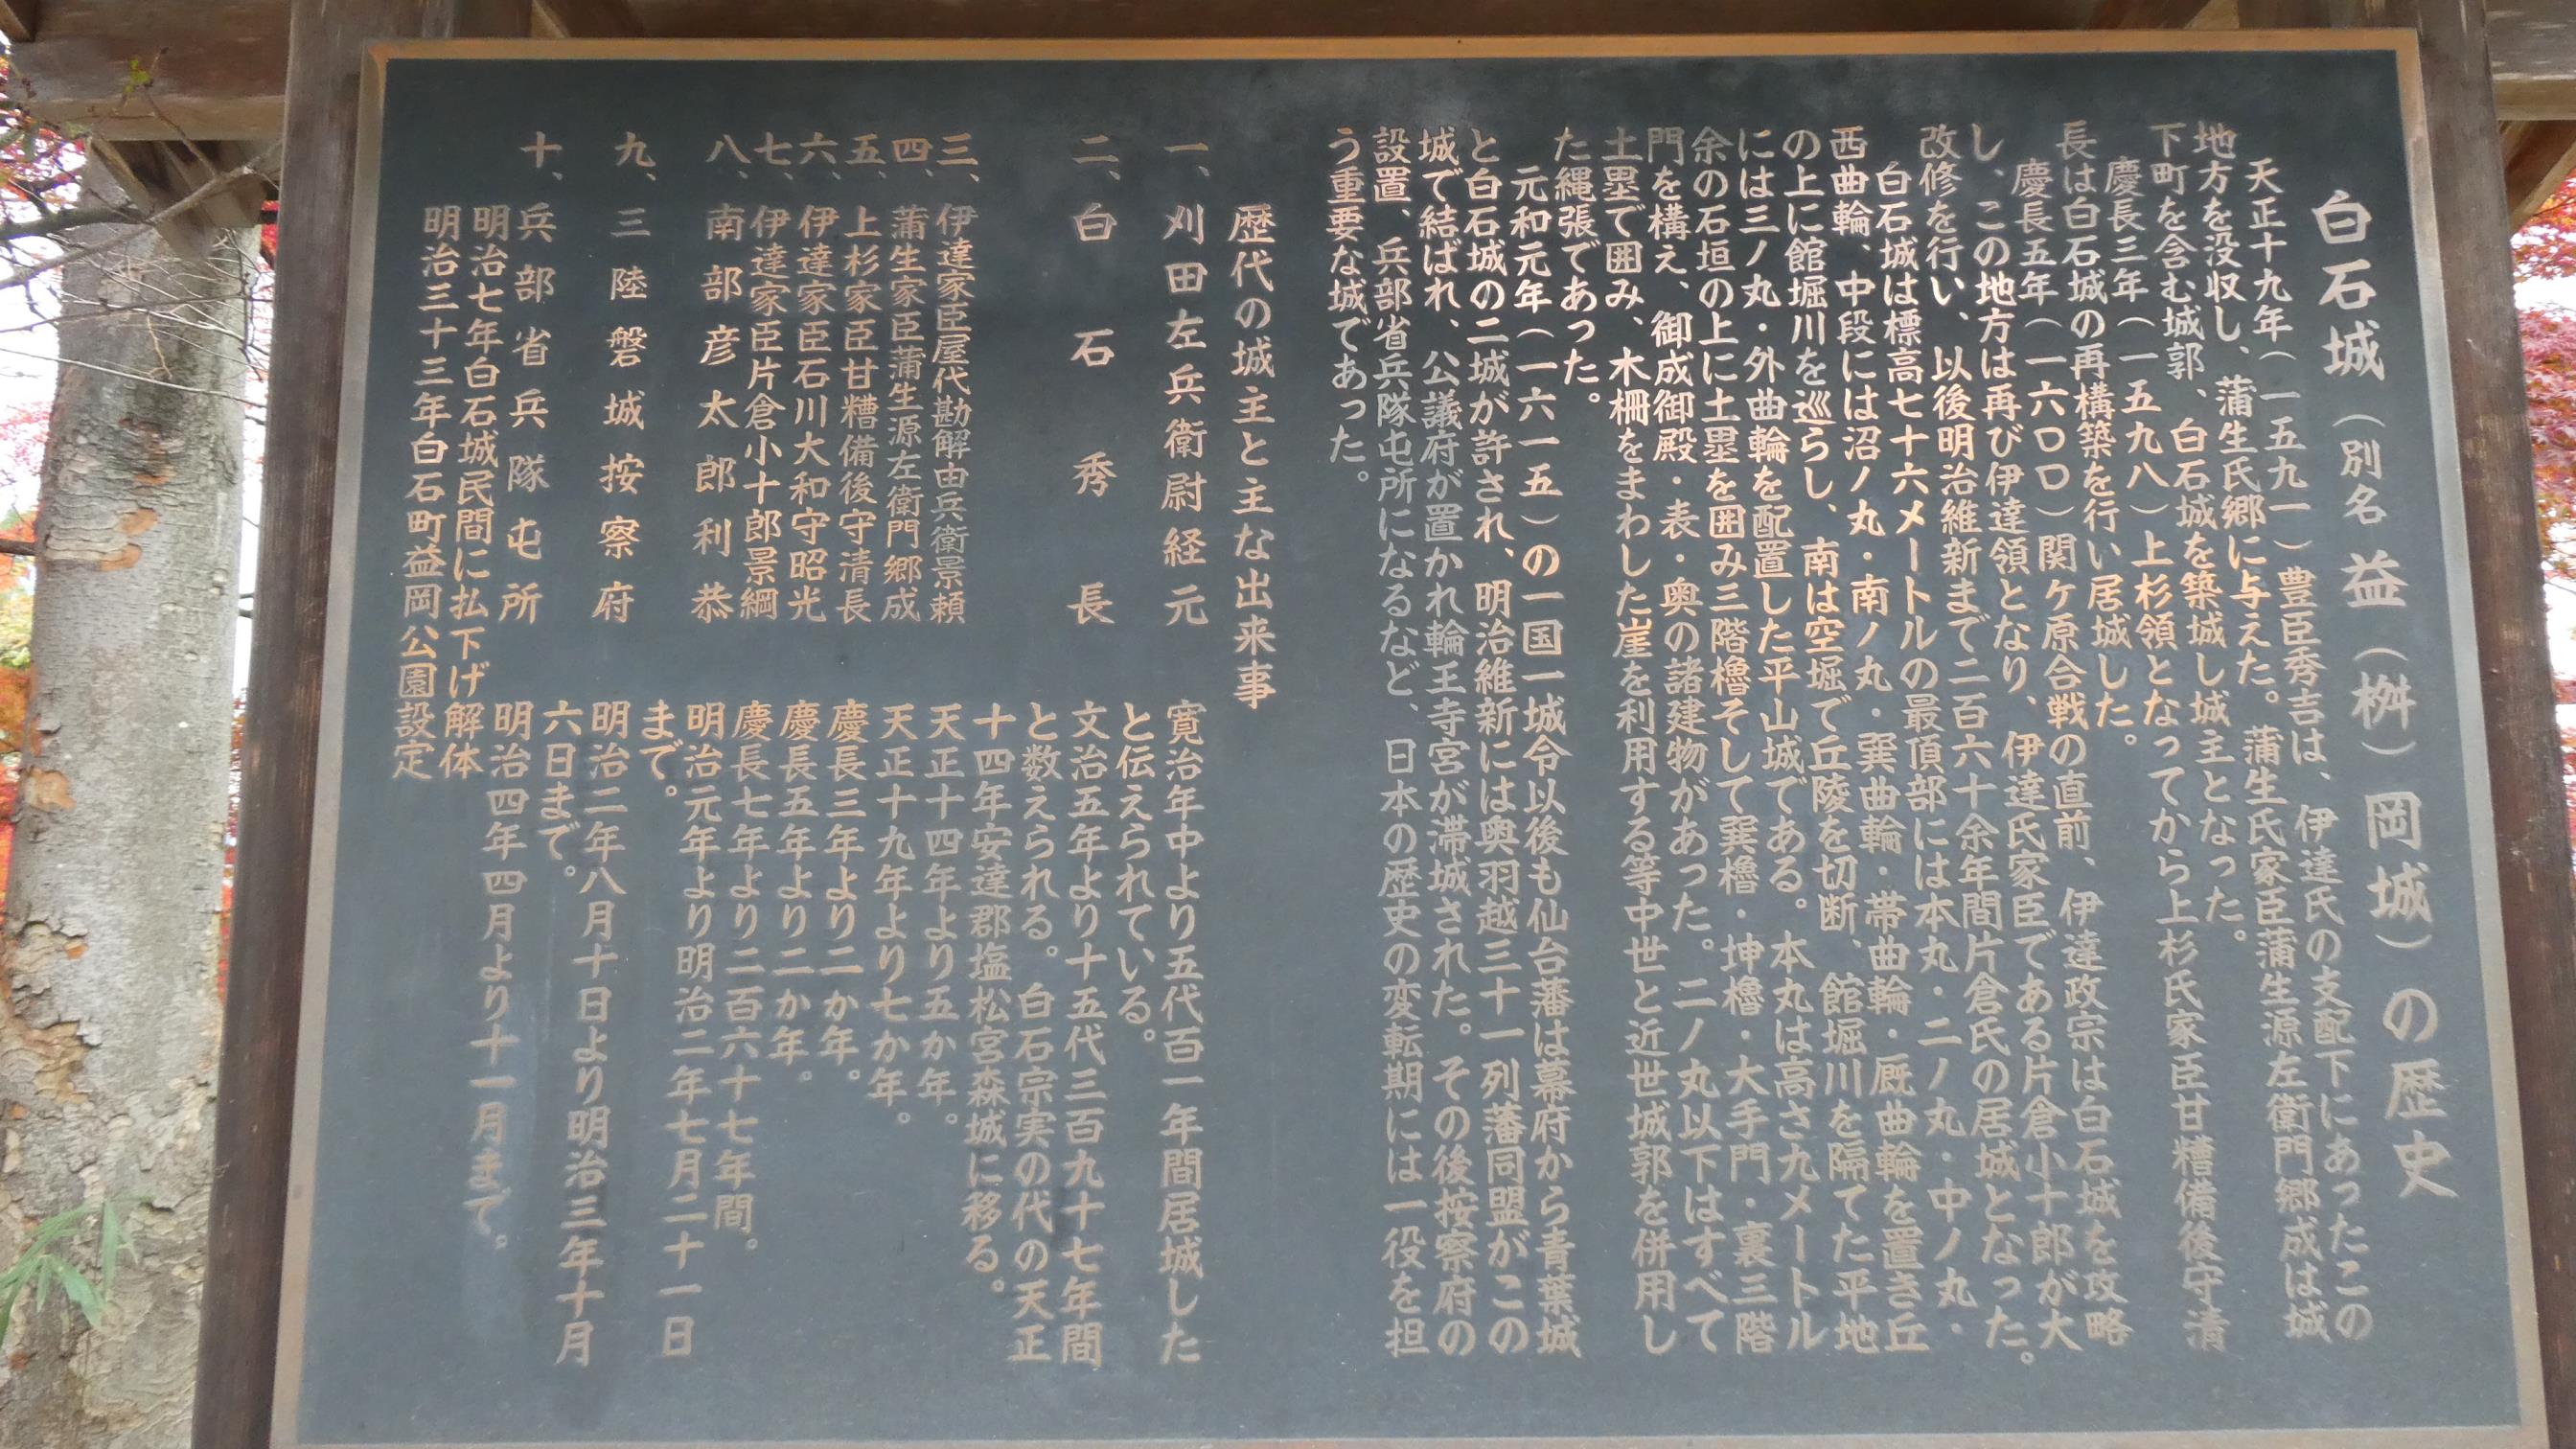 白石城（別名 益（桝）岡城）の歴史
天正十九年（一五九一）豊臣秀吉は、伊達氏の支配下にあったこの
地方を没収し、蒲生氏郷に与えた。蒲生氏家臣蒲生源左衛門郷成は城
下町を含む城郭、白石城を築城し城主となった。
慶長三年（一五九八）上杉領となってから上杉氏家臣甘糟備後守清
長は白石城の再構築を行い居城した。
慶長五年（一六〇〇）関ケ原合戦の直前、伊達政宗は白石城を攻略
し、この地方は再び伊達領となり、伊達氏家臣である片倉小十郎が大
改修を行い、以後明治維新まで二百六十余年間片倉氏の居城となった。
白石城は標高七十六メートルの最頂部には本丸・二ノ丸・中ノ丸・
西曲輪、中段には沼ノ丸・南ノ丸・巽曲輪・帯曲輪・厩曲輪を置き丘
の上に館堀川を巡らし、南は空堀で丘陵を切断、館堀川を隔てた平地
には三ノ丸・外曲輪を配置した平山城である。本丸は高さ九メートル
余の石垣の上に土塁を囲み三階櫓そして巽櫓・坤櫓・大手門・裏三階
門を構え、御成御殿・表・奥の諸建物があった。二ノ丸以下はすべて
土塁で囲み、木柵をまわした崖を利用する等中世と近世城郭を併用し
た縄張であった。
元和元年（一六一五）の一国一城令以後も仙台藩は幕府から青葉城
と白石城の二城が許され、明治維新には奥羽越三十一列藩同盟がこの
城で結ばれ、公議府が置かれ輪王寺宮が滞城された。その後按察府の
設置、兵部省兵隊屯所になるなど、日本の歴史の変転期には一役を担
う重要な城であった。
歴代の城主と主な出来事
一、刈田左兵衛尉経元 寛治年中より五代百一年間居城した
と伝えられている。
二、白石秀長 文治五年より十五代三百九十七年間
と数えられる。白石宗実の代の天正
十四年安達郡塩松宮森城に移る。
三、伊達家臣屋代勘解由兵衛景頼 天正十四年より五か年。
四、蒲生家臣蒲生源左衛門郷成 天正十九年より七か年。
五、上杉家臣甘糟備後守清長 慶長三年より二か年。
六、伊達家臣石川大和守昭光 慶長五年より二か年。
七、伊達家臣片倉小十郎景綱 慶長七年より二百六十七年間。
八、南部彦太郎利恭 明治元年より明治二年七月二十一日
まで。
九、三陸磐城按察府 明治二年八月十日より明治三年十月
六日まで。
十、兵部省兵隊屯所 明治四年四月より十一月まで。
明治七年白石城民間に払下げ解体
明治三十三年白石町益岡公園設定